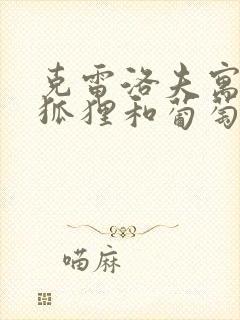 克雷洛夫寓
狐狸和葡萄
喵麻